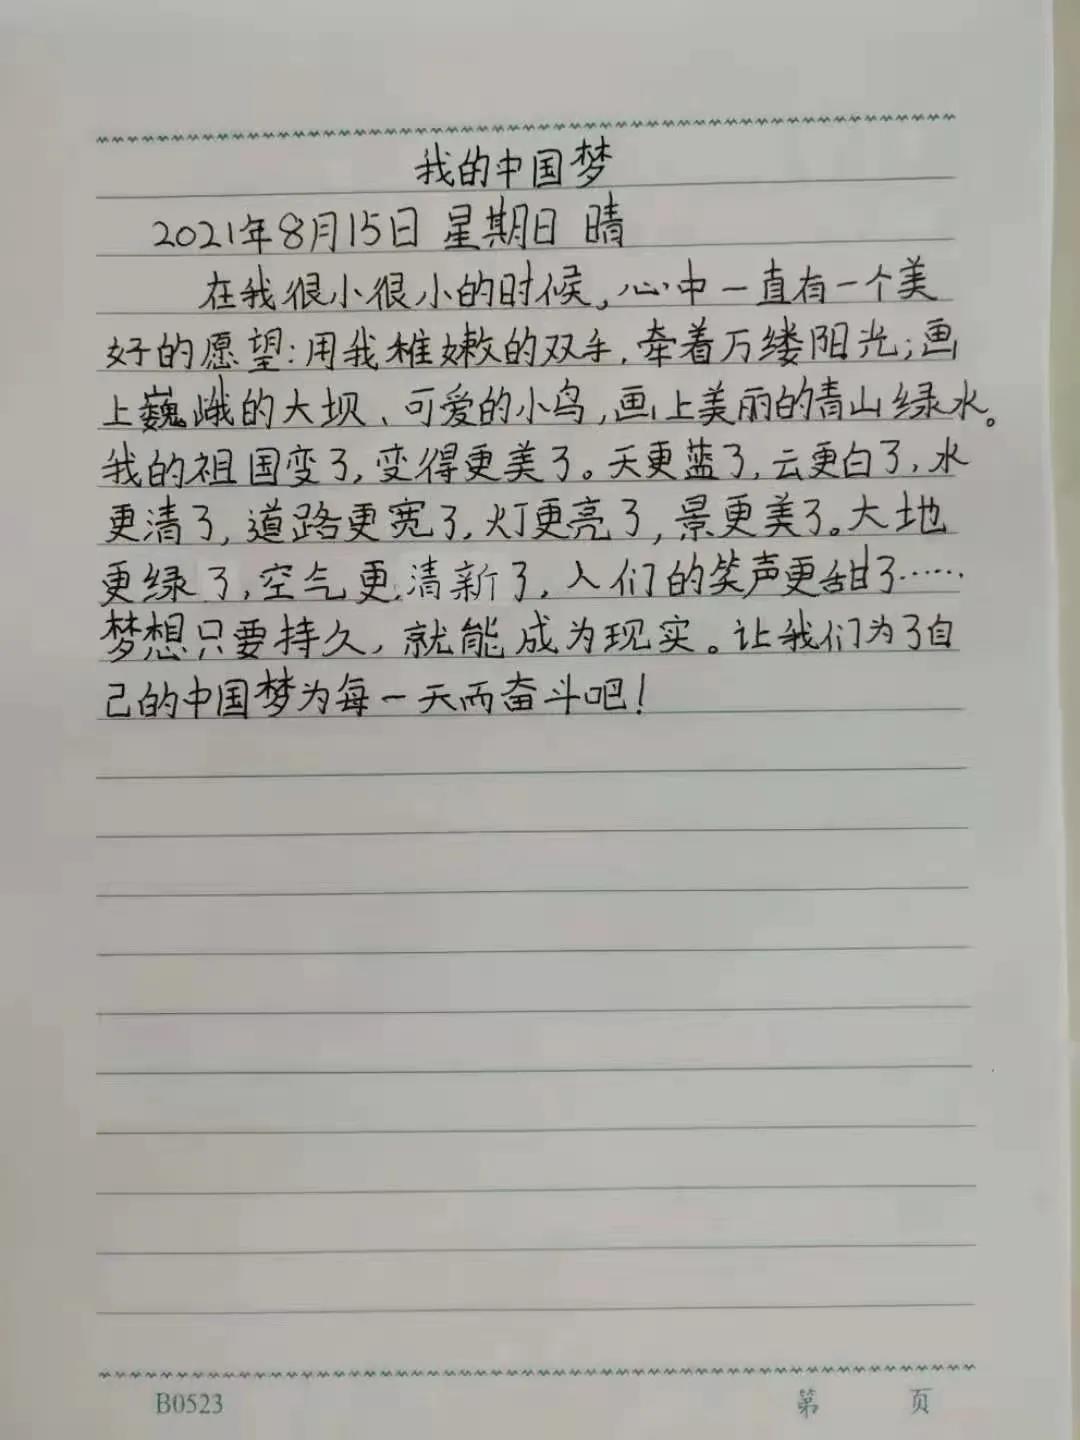 我的中国梦
2021年8月15日 星期日 晴
在我很小很小的时候,心中一直有一个美
好的愿望:用我稚嫩的双手,牵着万缕阳光;画
上巍峨的大坝、可爱的小鸟,画上美丽的青山绿水。
我的祖国变了,变得更美了。天更蓝了,云更白了,水
更清了,道路更宽了,灯更亮了,景更美了。大地
更绿了,空气更清新了,人们的笑声更甜了……
梦想只要持久,就能成为现实。让我们为了自
己的中国梦为每一天而奋斗吧!
B0523 第 页